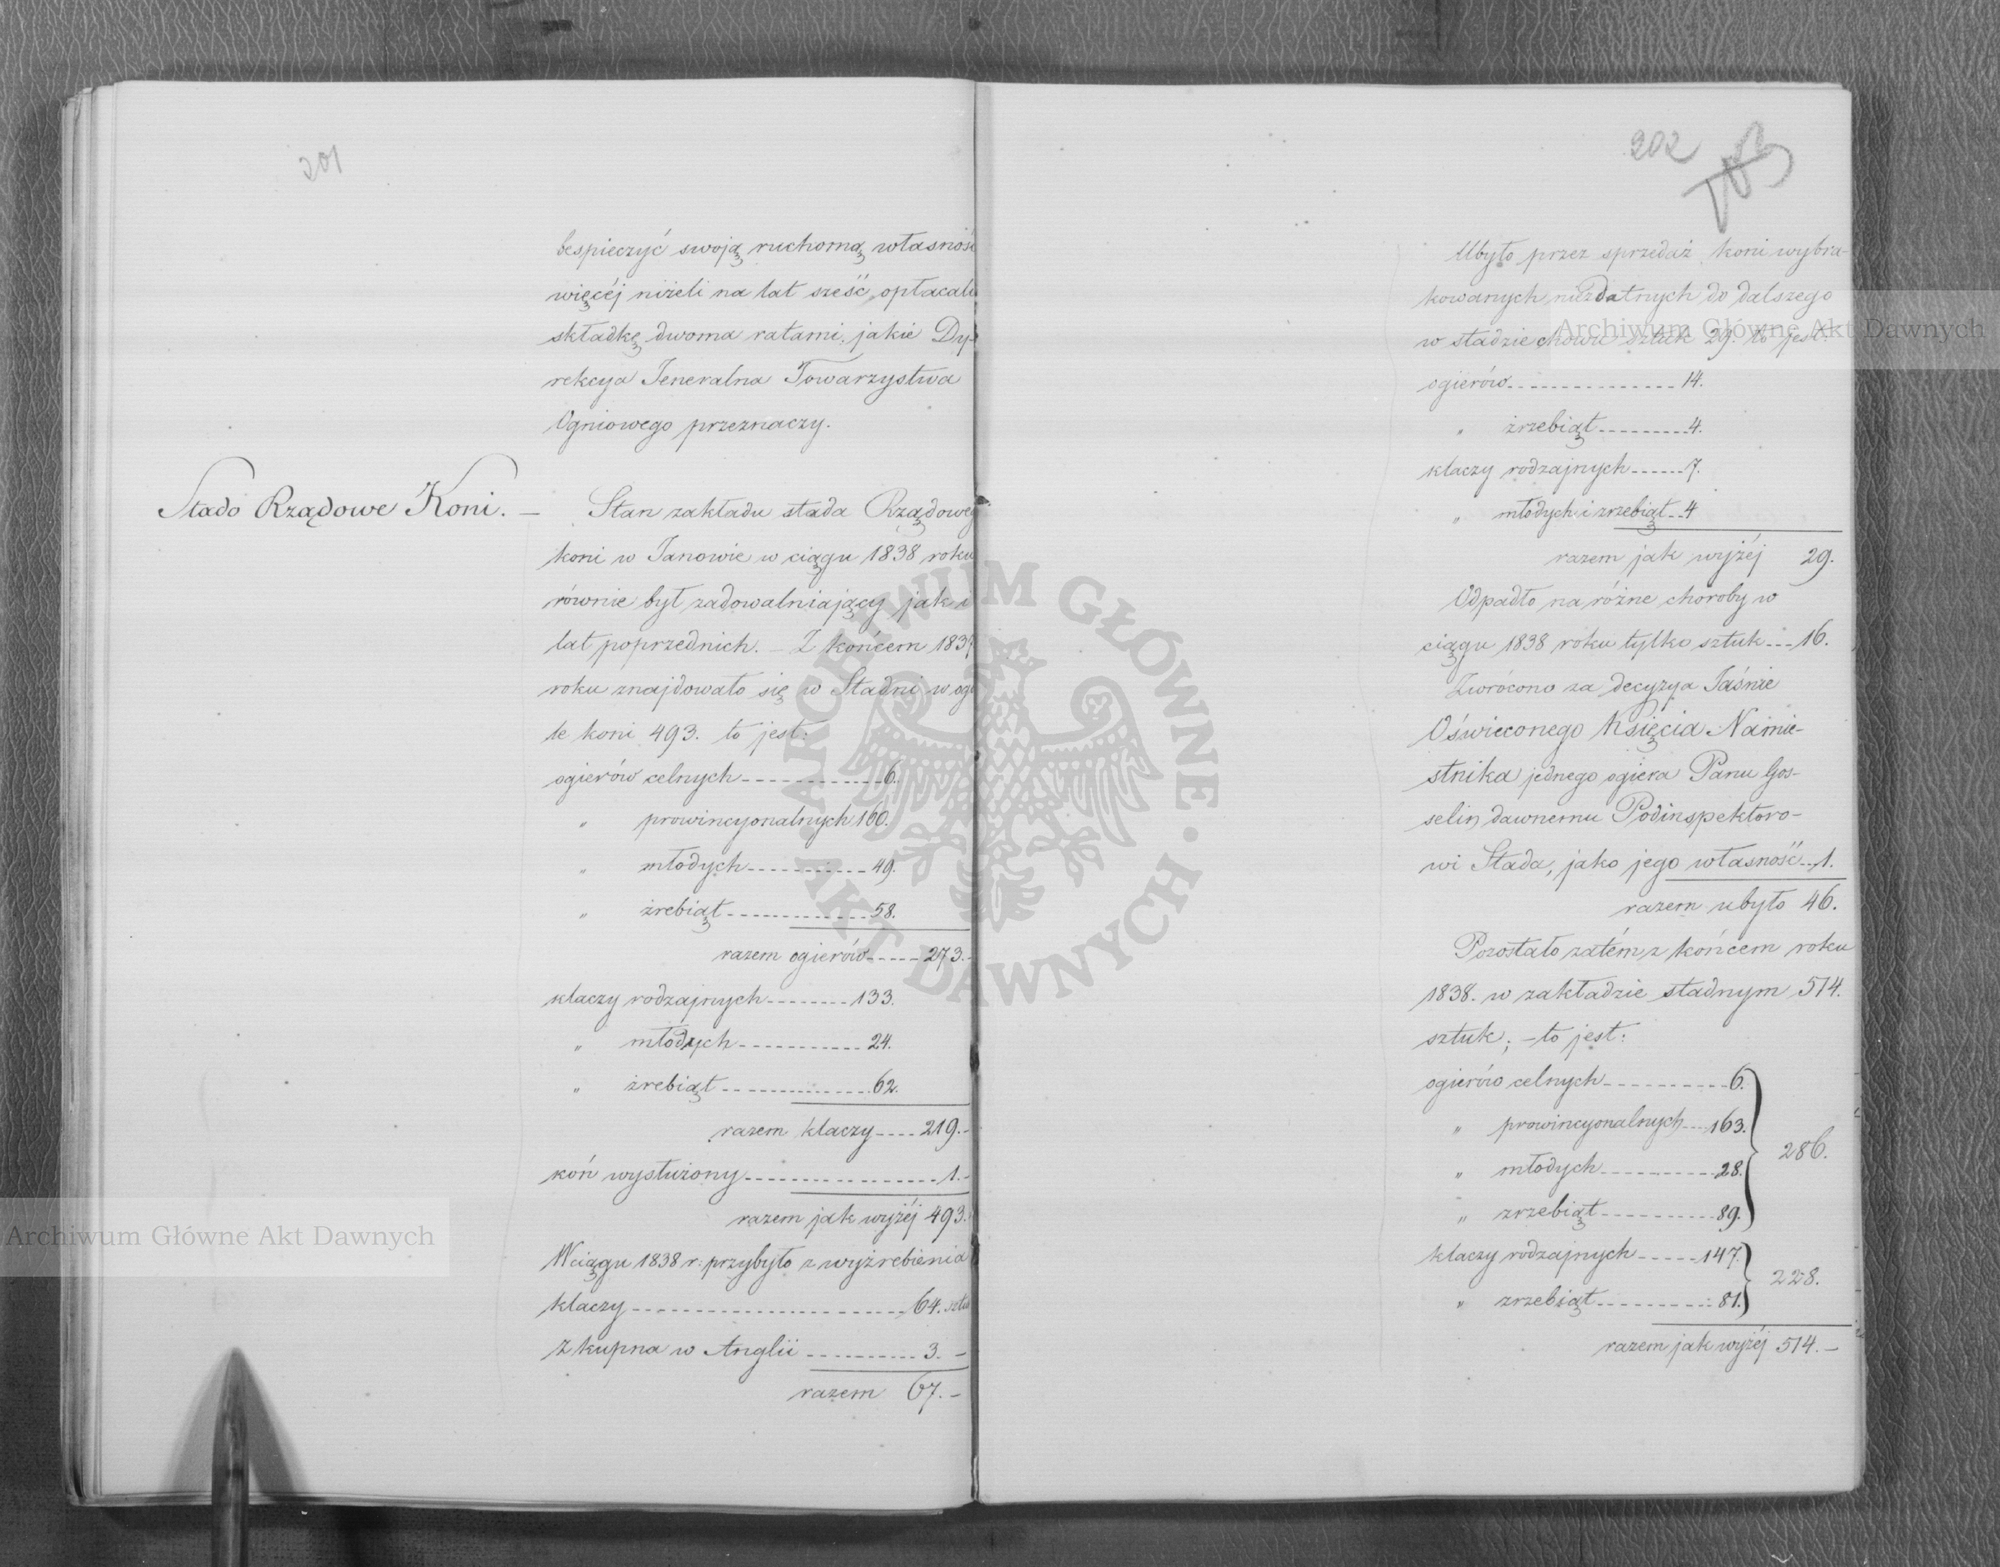 201
bespieczyć swoją ruchomą własność
więcéj niżeli na lat sześć, opłacali
składkę dwoma ratami, jakie Dy-
rekcya Jeneralna Towarzystwa
Ogniowego przeznaczy.
Stado Rządowe Koni. —
Stan zakładu stada Rządoweg
koni w Janowie w ciągu 1838 roku
równie był zadowalniający jak i
lat poprzednich. — Z końcem 1837
roku znajdowało się w Stadni w ogó
le koni 493. to jest:
ogierów celnych 6.
„ prowincyonalnych 160.
„ młodych 49.
„ źrebiąt 58.
razem ogierów 273.-
klaczy rodzajnych 133.
„ młodych 24.
„ źrebiąt 62.
razem klaczy 219.-
koń wysłużony 1.-
razem jak wyżéj 493.
W ciągu 1838 r: przybyło z wyźrebienia
klaczy 64. sztu
Z kupna w Anglii 3. —
razem 67. —
202
103
Ubyło przez sprzedaż koni wybra-
kowanych niezdatnych do dalszego
w stadzie chowu sztuk 29. to jest:
ogierów 14.
„ źrzebiąt 4.
klaczy rodzajnych 7.
„ młodych i zrzebiąt 4
razem jak wyżéj 29.
Odpadło na różne choroby w
ciągu 1838 roku tylko sztuk 16.
Zwrócono za decyzya Jaśnie
Oświeconego Księcia Namie-
stnika jednego ogiera Panu Gos-
selin dawnemu Podinspektoro-
wi Stada, jako jego własność 1.
razem ubyło 46.
Pozostało zatém z końcem roku
1838. w zakładzie stadnym 514.
sztuk; — to jest:
ogierów celnych 6.
„ prowincyonalnych 163.
„ młodych 28.
„ zrzebiąt 89.
286.
klaczy rodzajnych 147.
„ zrzebiąt 81.
228.
razem jak wyżéj 514. —
Archiwum Główne Akt Dawnych
Archiwum Główne Akt Dawnych
ARCHIWUM GŁÓWNE • AKT DAWNYCH •